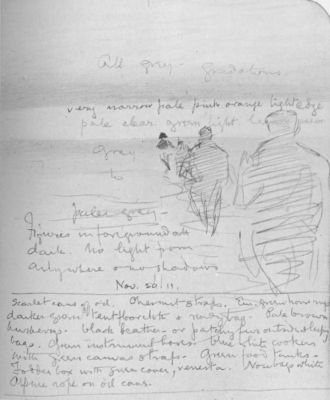 All grey - gradations
very narrow pale pink orange light edge
pale clear green light
Grey
to
paler grey -
Figures in foreground all
dark. No light from
anywhere & no shadows
Nov. 20/11.
Scarlet cans of oil. Chestnut straps.
darker green tent floorcloth & ready bag. Pale brown
black leather or patchy fur on tired sleepy
bags. Green instrument boxes. blue & white cookers
with green canvas straps. Green food tanks.
Fodder box with green cover, venesta. Nosebags white
Alpine rope on oil cans.